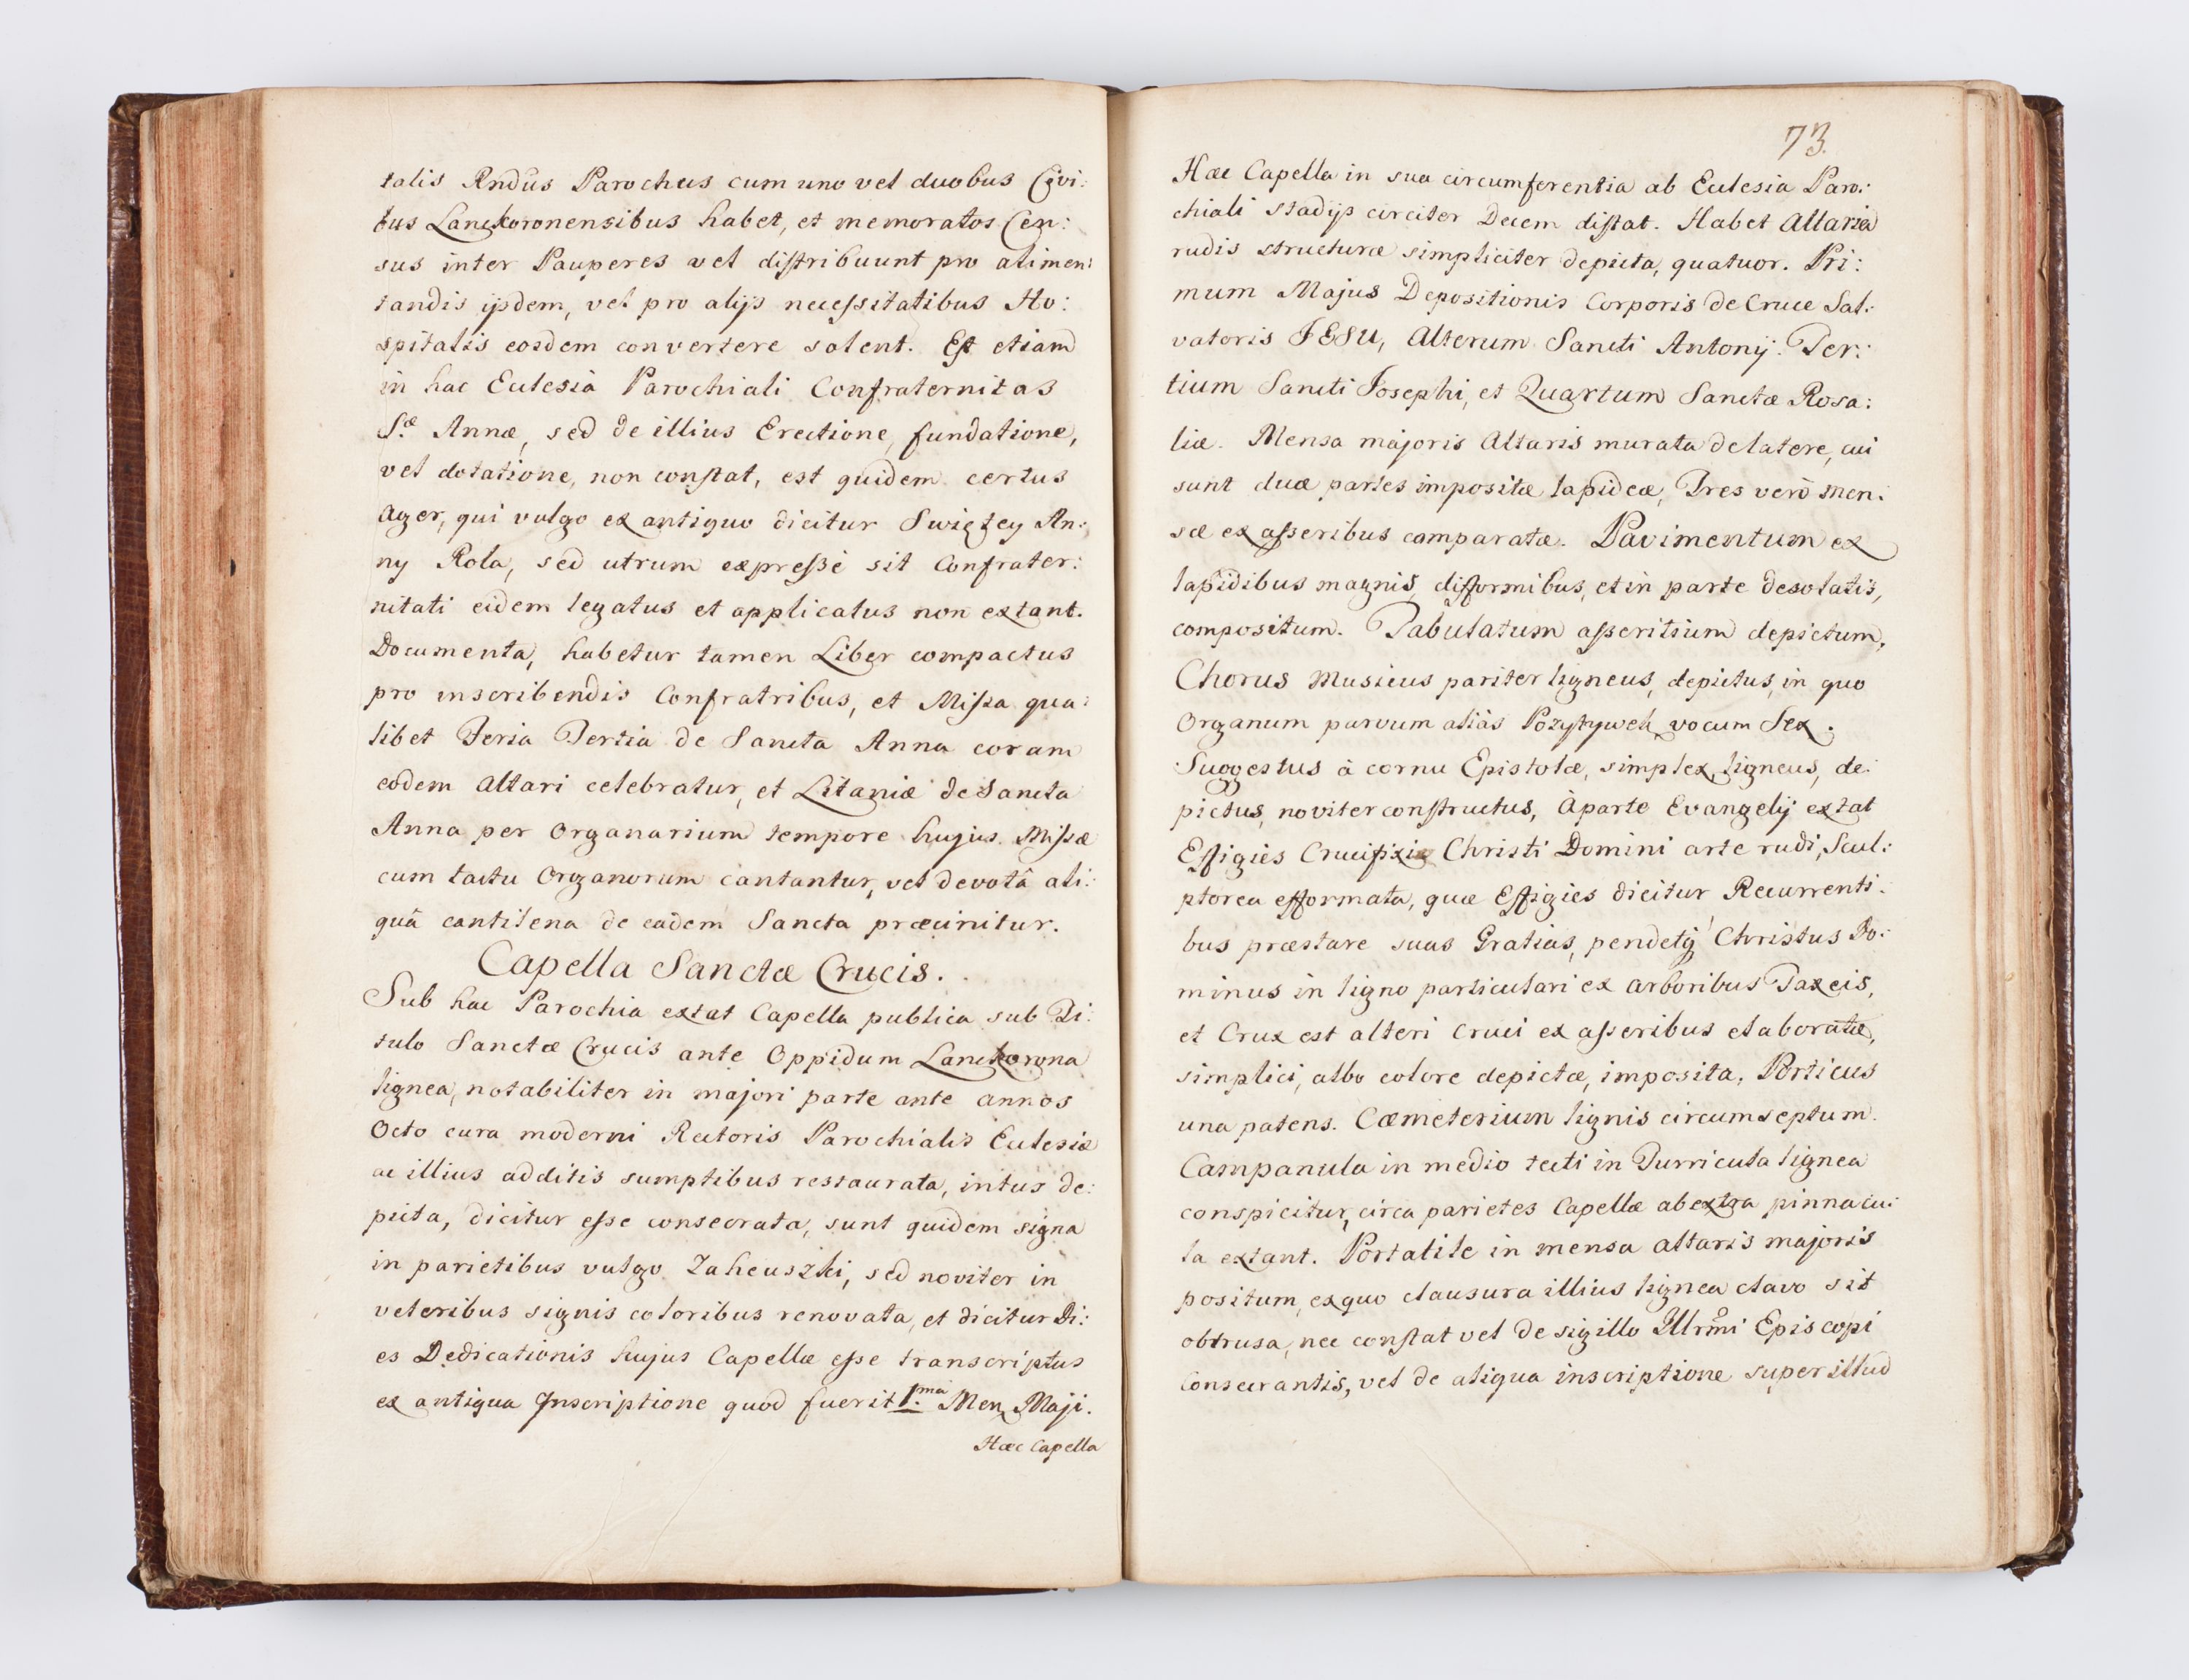 talis Rndus Parochus cum uno vel duobus Civi:
bus Lanckoronensibus habet, et memoratos Cen:
sus inter Pauperes vel distribuunt pro alimen:
tandis ijsdem, vel pro alijs necessitatibus Ho:
spitalis eosdem convertere solent. Est etiam
in hac Ecclesia Parochiali Confraternitas
S.æ Annæ, sed de illius Erectione, fundatione,
vel dotatione, non constat, est quidem certus
Ager, qui vulgo ex antiquo dicitur Swiętey An:
ny Rola, sed utrum expresse sit Confrater:
nitati eidem legatus et applicatus non extant.
Documenta, habetur tamen Liber compactus
pro inscribendis Confratribus, et Missa qua:
libet Feria Tertia de Sancta Anna coram
eodem Altari celebratur, et Litaniæ de Sancta
Anna per Organarium tempore hujus Missæ
cum tactu Organorum cantantur, vel devotâ ali:
quâ cantilena de eâdem Sancta præcinitur.
Capella Sanctæ Crucis.
Sub hac Parochia extat Capella publica sub Ti:
tulo Sanctæ Crucis ante Oppidum Lanckorona
lignea, notabiliter in majori parte ante annos
Octo cura moderni Rectoris Parochialis Ecclesiæ
ac illius additis sumptibus restaurata, intus de:
picta, dicitur esse consecrata, sunt quidem signa
in parietibus vulgo Zaheuszki, sed noviter in
veteribus signis coloribus renovata, et dicitur Di:
es Dedicationis hujus Capellæ esse transcriptus
ex antiqua Inscriptione quod fuerit 1.ma Men. Maji.
Hæc Capella
73.
Hæc Capella in sua circumferentia ab Ecclesia Paro:
chiali stadijs circiter Decem distat. Habet Altaria
rudis structuræ simpliciter depicta, quatuor. Pri:
mum Majus Depositionis Corporis de Cruce Sal:
vatoris JESU, Alterum Sancti Antonij. Ter:
tium Sancti Josephi, et Quartum Sanctæ Rosa:
liæ. Mensa majoris Altaris murata de latere, cui
sunt duæ partes impositæ lapideæ, Tres verò men:
sæ ex asseribus comparatæ. Pavimentum ex
lapidibus magnis, difformibus, et in parte desolatis,
compositum. Tabulatum asseritium depictum,
Chorus Musicus pariter ligneus, depictus, in quo
Organum parvum aliàs Pozytywek vocum Sex.
Suggestus à cornu Epistolæ, simplex, ligneus, de:
pictus, noviter constructus, à parte Evangelij extat
Effigies Crucifixi Christi Domini arte rudi, Scul:
ptorea efformata, quæ Effigies dicitur Recurrenti:
bus præstare suas Gratias, pendetq Christus Do:
minus in ligno particulari ex arboribus Taxeis,
et Crux est alteri Cruci ex asseribus elaboratæ,
simplici, albo colore depictæ, imposita, Porticus
una patens. Cæmeterium lignis circumseptum.
Campanula in medio tecti in Turricula lignea
conspicitur, circa parietes Capellæ ab extra pinnacu:
la extant. Portatile in mensa altaris majoris
positum, ex quo clausura illius lignea clavo sit
obtrusa, nec constat vel de sigillo Illrmi Episcopi
Consecrantis, vel de aliqua inscriptione super illud